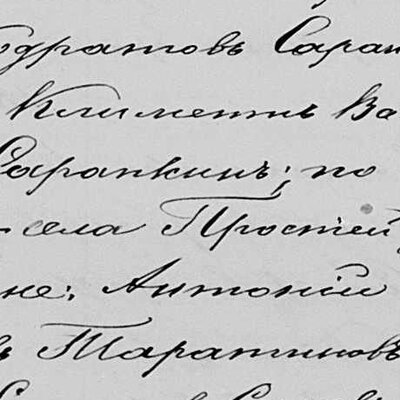 одратовъ Сарап
Климентъ Ва
Сарапкинъ; по
села Простей
не: Антоній
въ Таратиновъ